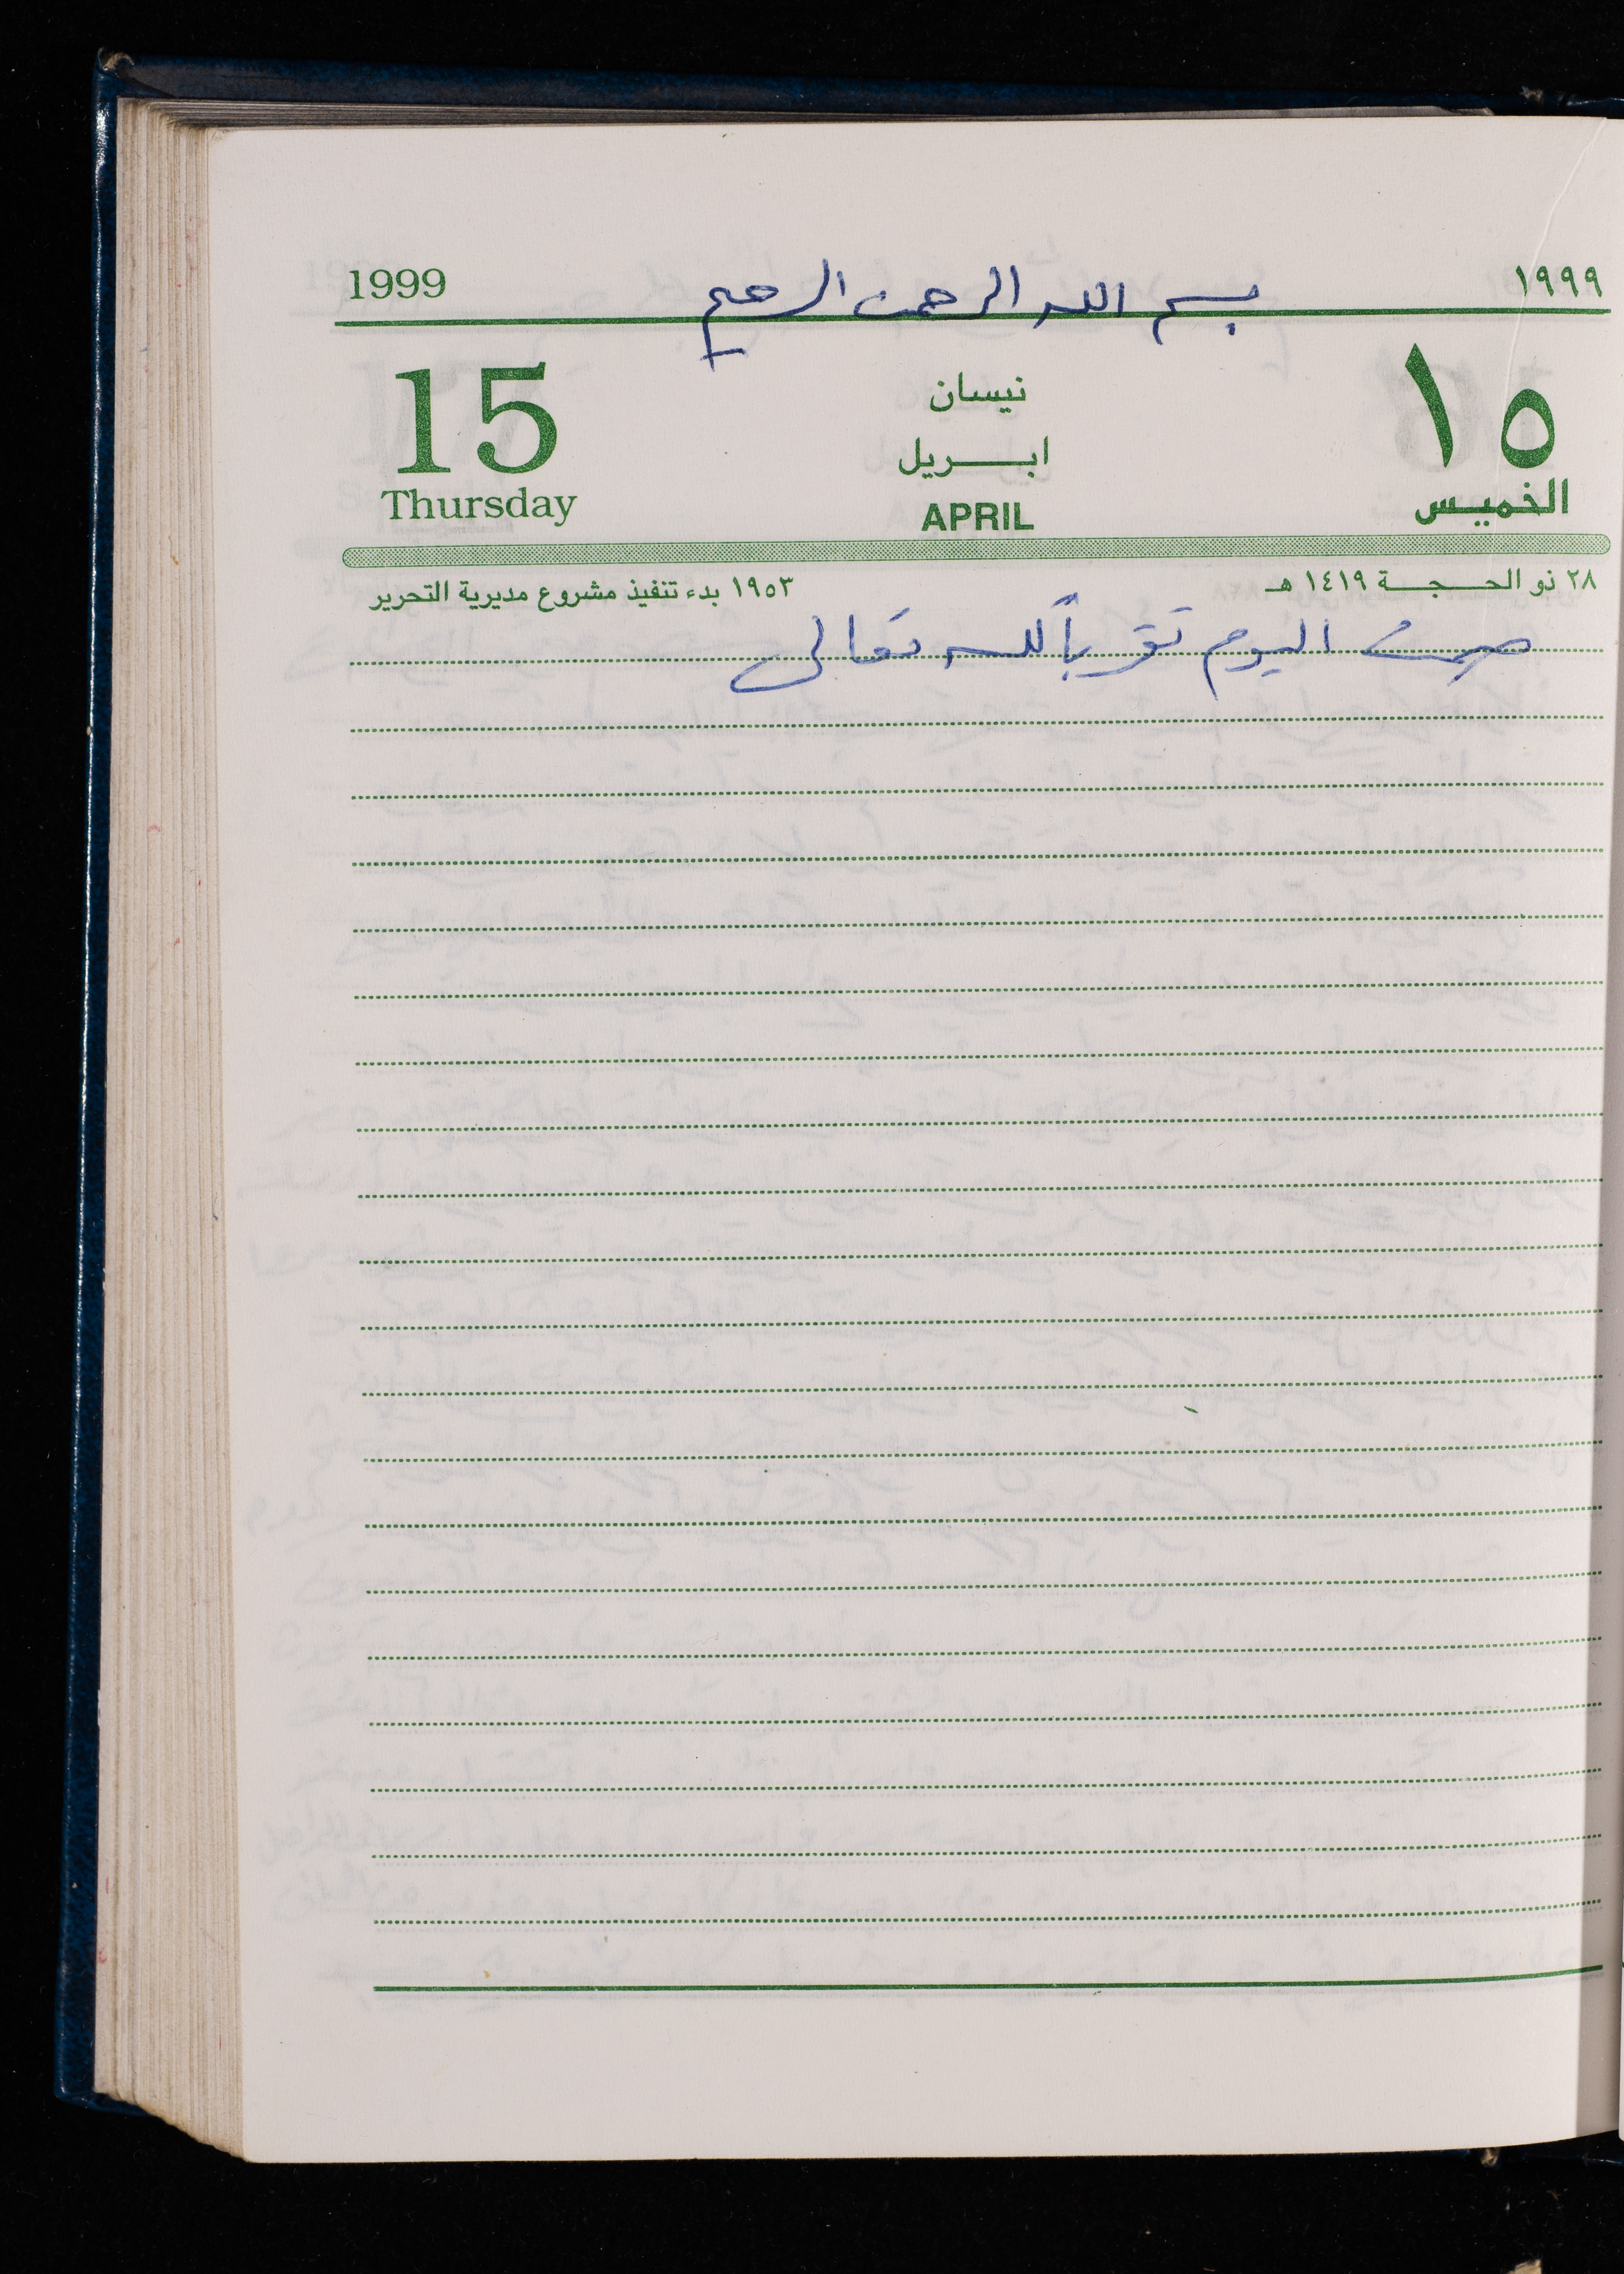 1999 بسم الله الرحمن الرحيم ١٩٩٩
15 نيسان ١٥
ابريل
Thursday APRIL الخميس
٢٨ ذو الحجة ١٤١٩ هـ ١٩٥٣ بدء تنفيذ مشروع مديرية التحرير
صمت اليوم تقرباً لله تعالى